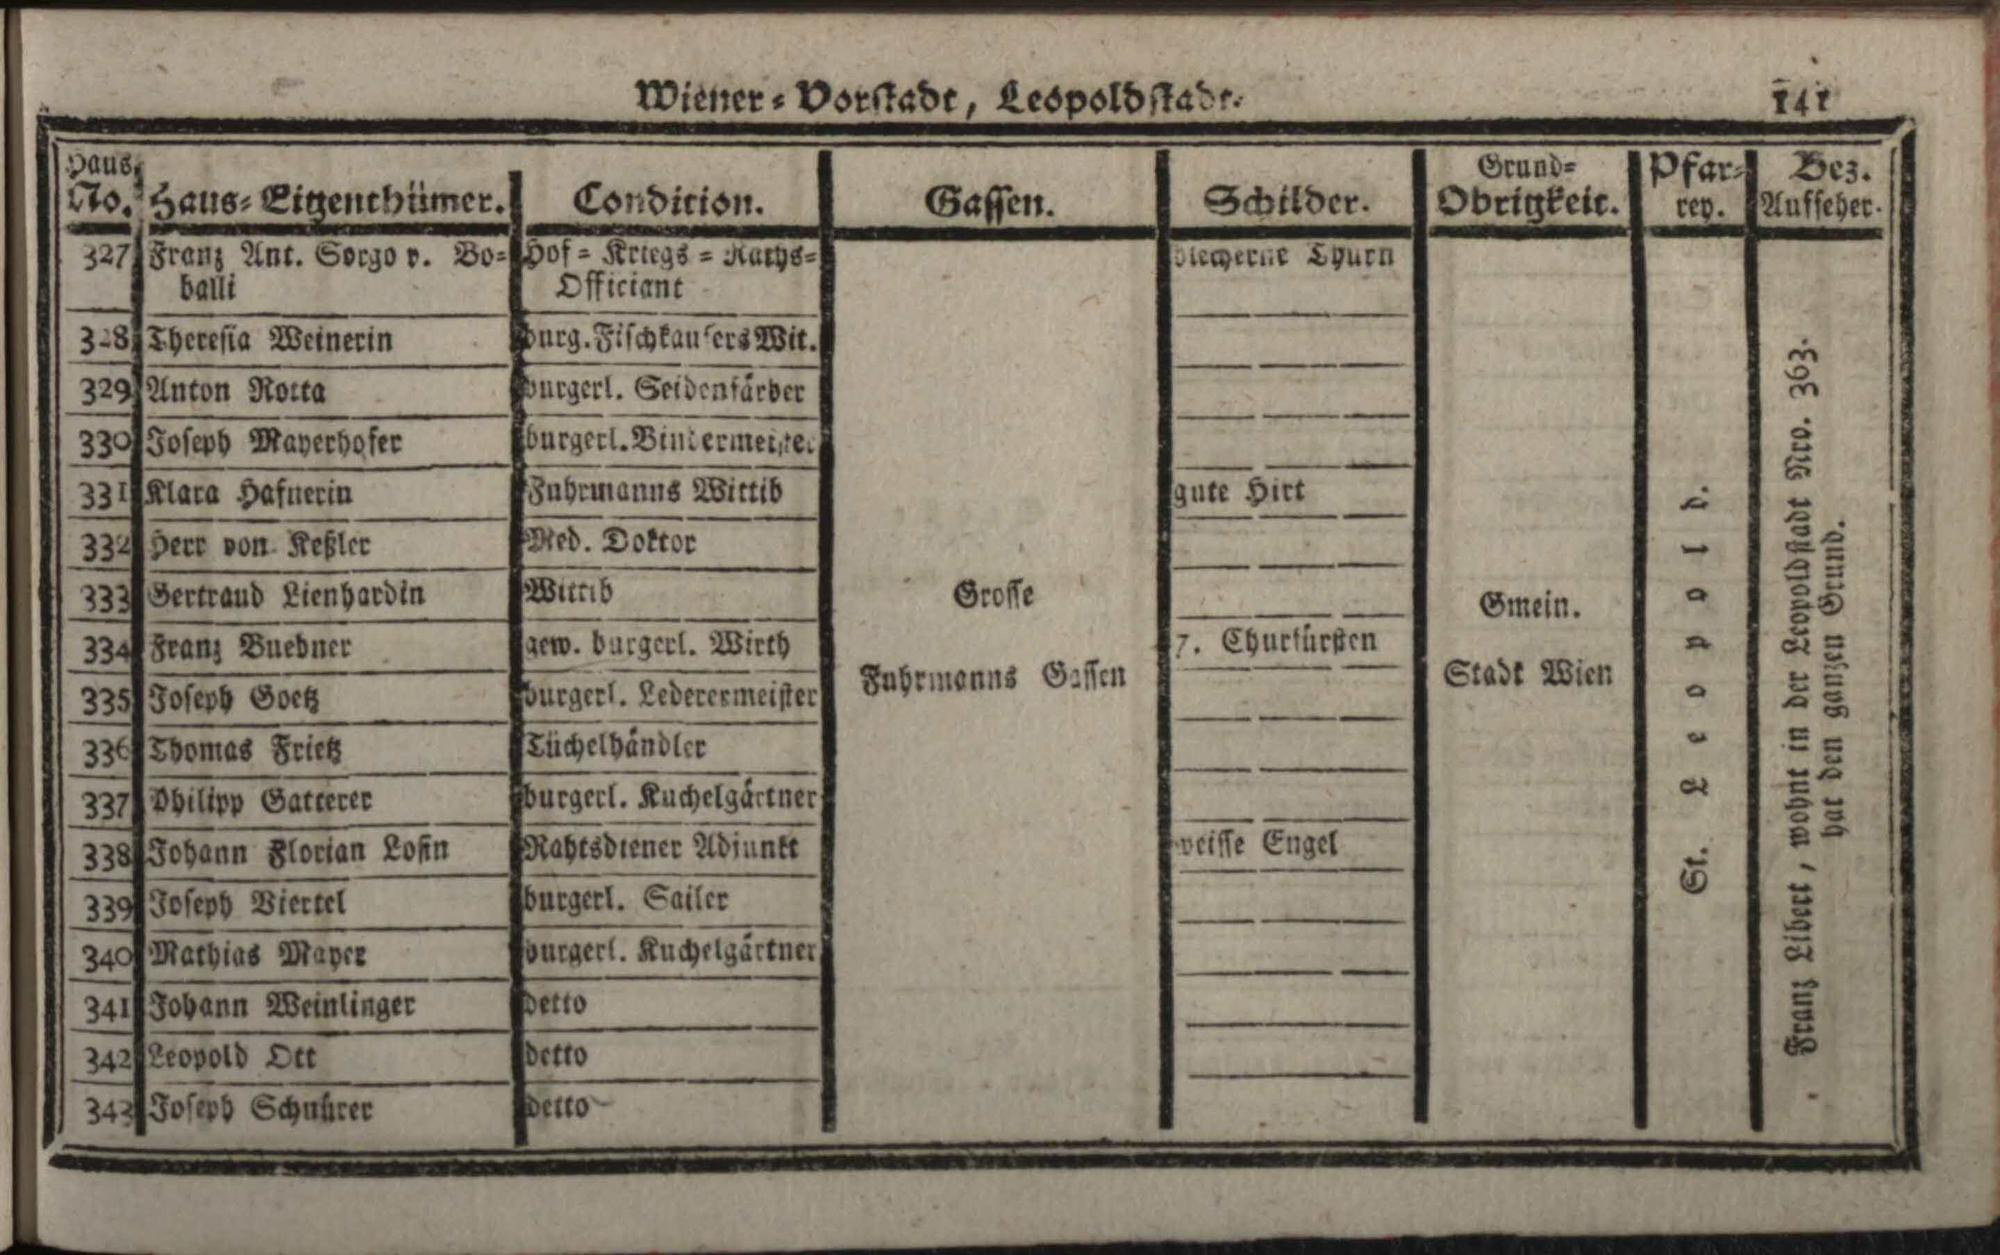 Wiener-Vorstadt, Leopoldstadt. 141
Haus-No. Haus-Eigenthümer. Condition. Gassen. Schilder. Grund-Obrigkeit. Pfar-rey. Bez. Aufseher.
327 Franz Ant. Sorgo v. Bo- Hof-Kriegs-Raths- blecherne Thurn
balli Officiant
328 Theresia Weinerin burg. Fischkaufers Wit.
329 Anton Rotta burgerl. Seidenfärber
330 Joseph Mayerhofer burgerl. Bindermeister
331 Klara Hafnerin Fuhrmanns Wittib gute Hirt
332 Herr von Keßler Med. Doktor
333 Gertraud Lienhardin Wittib
334 Franz Buebner gew. burgerl. Wirth 7. Churfürsten
335 Joseph Goetz burgerl. Lederermeister
336 Thomas Frietz Tüchelhändler
337 Philipp Gatterer burgerl. Kuchelgärtner
338 Johann Florian Losin Rahtsdiener Adjunkt weisse Engel
339 Joseph Viertel burgerl. Sailer
340 Mathias Mayer burgerl. Kuchelgärtner
341 Johann Weinlinger detto
342 Leopold Ott detto
343 Joseph Schnürer detto
Grosse
Fuhrmanns Gassen
Gmein.
Stadt Wien
St. Leopold.
Franz Libert, wohnt in der Leopoldstadt Nro. 363.
hat den ganzen Grund.